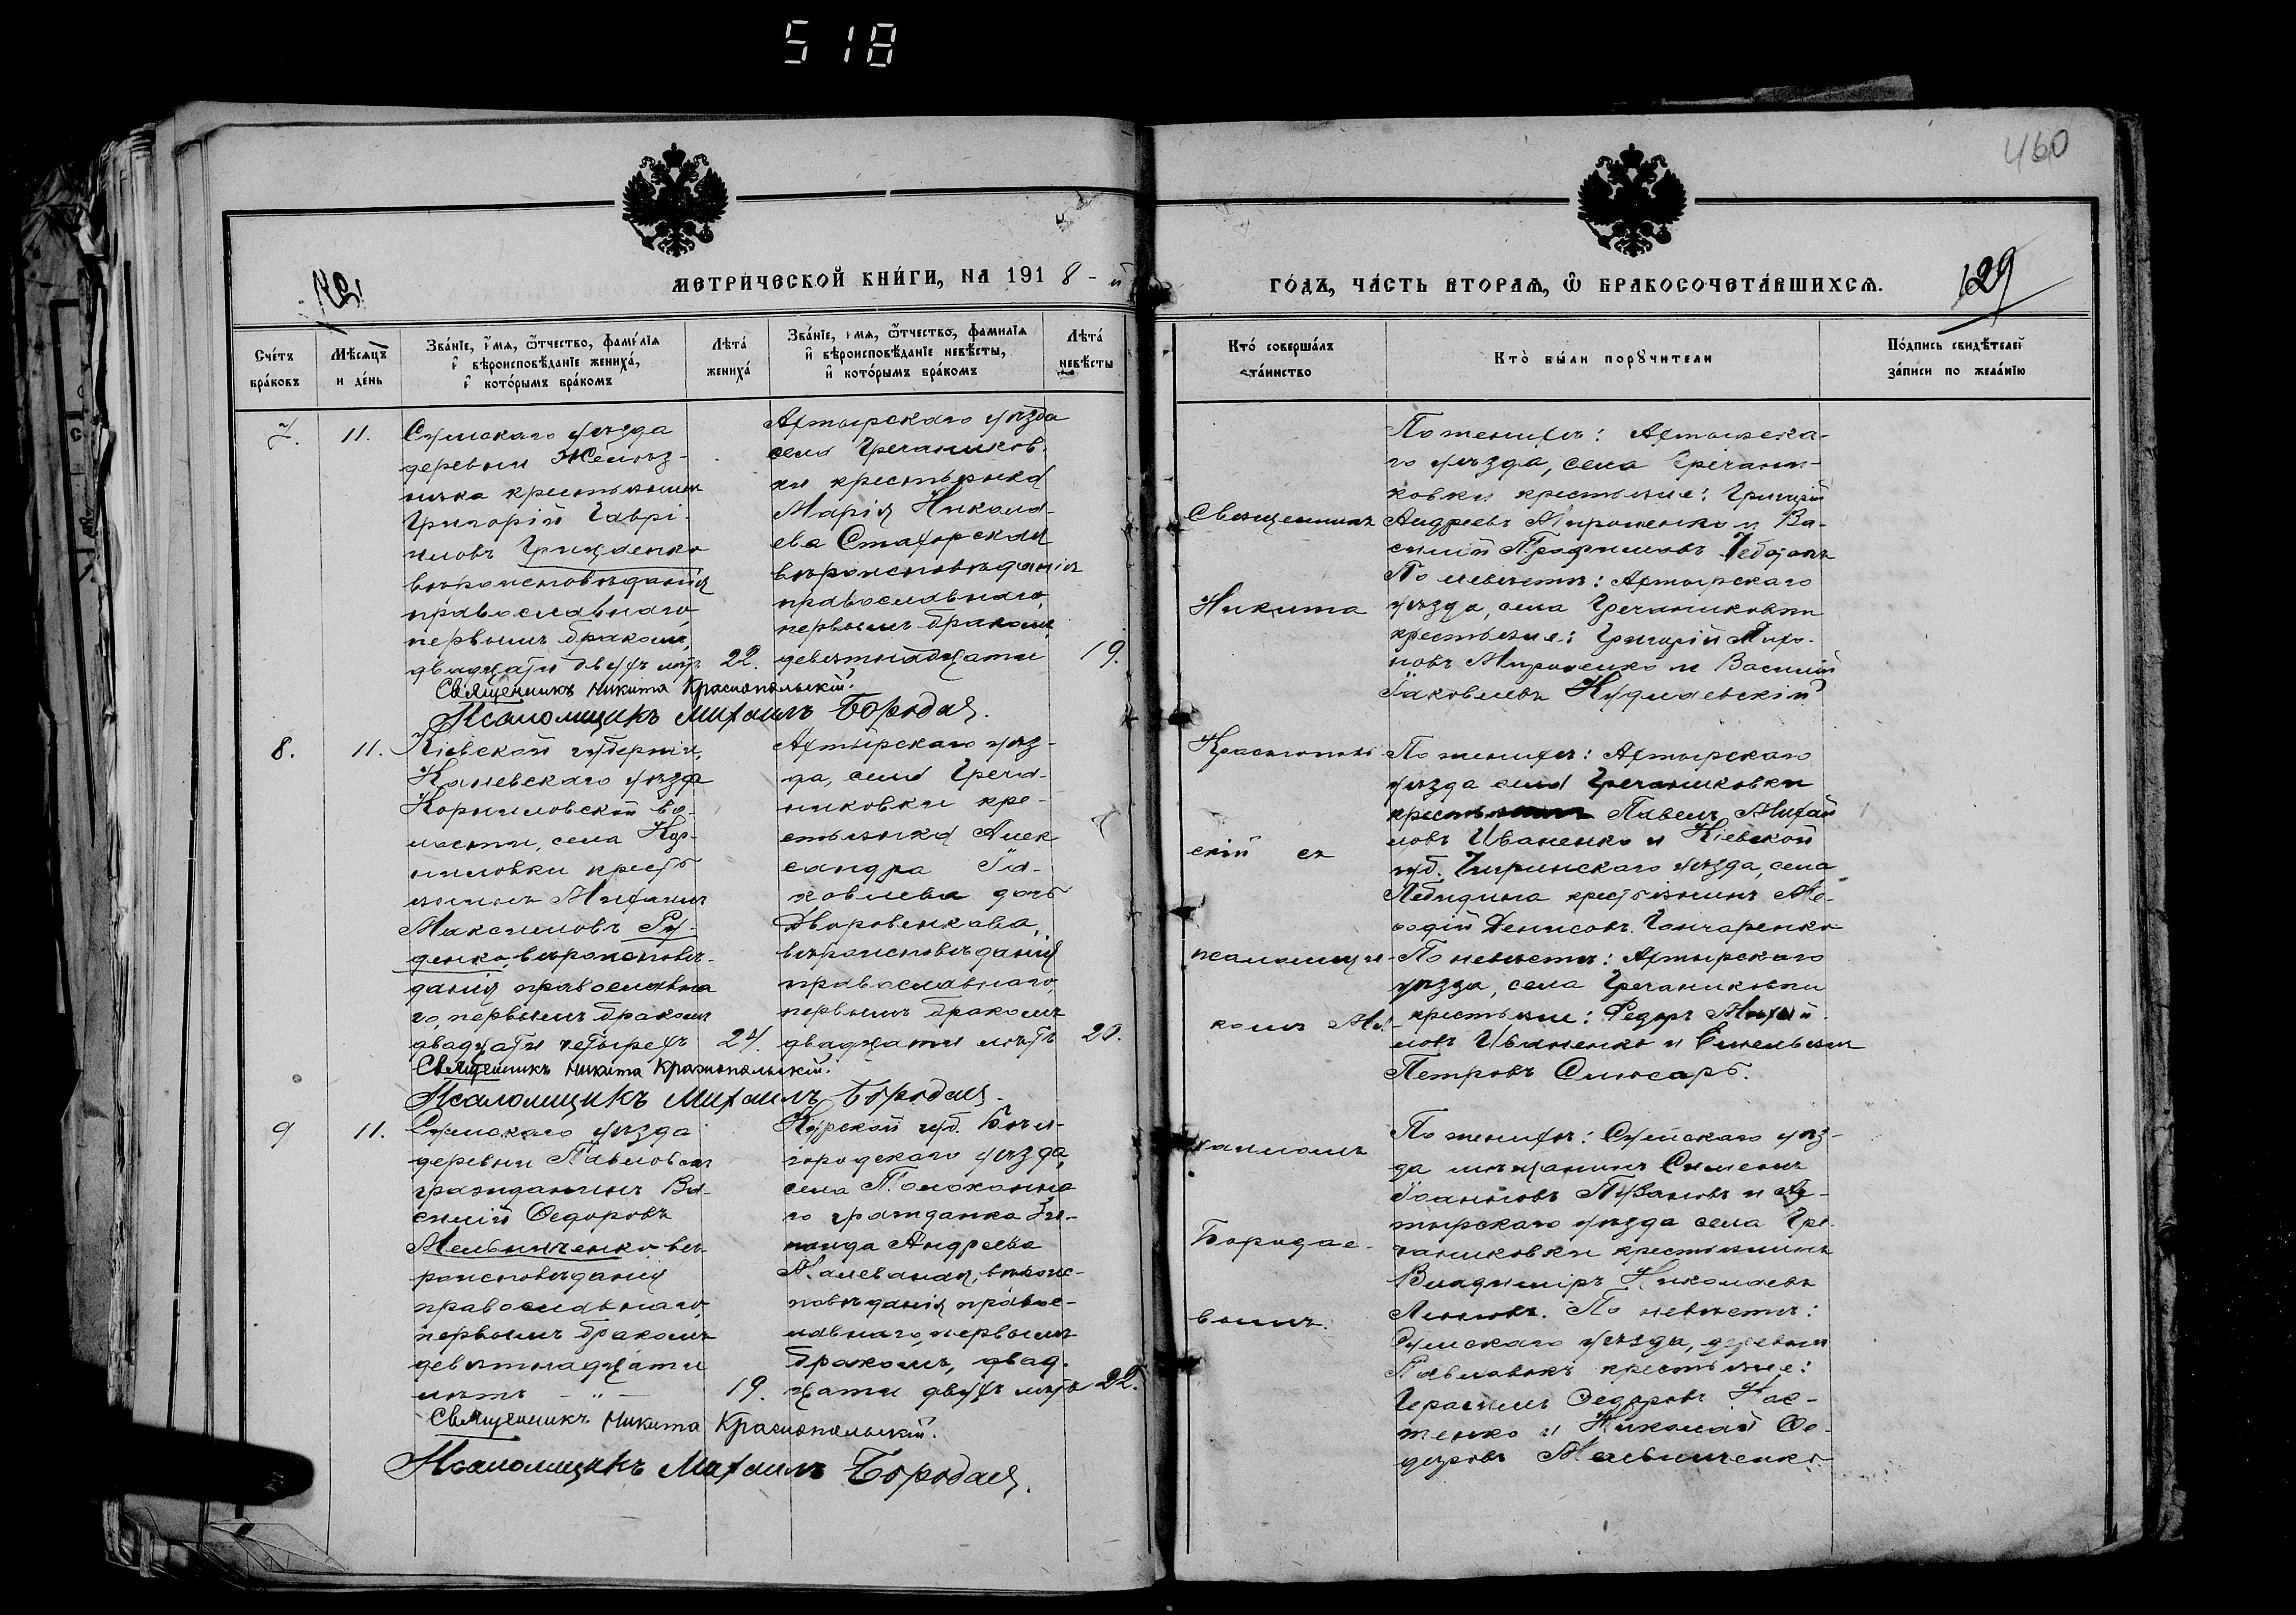 518
460
МЕТРИЧЕСКОЙ КНИГИ, НА 1918-й
ГОДЪ, ЧАСТЬ ВТОРАЯ, Ѿ БРАКОСОЧЕТАВШИХСЯ.
129
Счетъ браковъ
Мѣсяцъ и день
Званіе, имя, ѿтчество, фамилія
и вѣроисповѣданіе жениха,
и которымъ бракомъ
Лѣта
жениха
Званіе, имя, ѿтчество, фамилія
и вѣроисповѣданіе невѣсты,
и которымъ бракомъ
Лѣта
невѣсты
Кто совершалъ
таинство
Кто были поручители
Подпись свидѣтелей
записи по желанію
7.
11.
Сумскаго уѣзда
деревни Желѣз-
няка крестьянинъ
Григорій Гаврі-
иловъ Гриценко
вѣроисповѣданія
православнаго,
первымъ бракомъ,
двадцати двухъ лѣтъ
22.
Ахтырскаго уѣзда
села Гречаников-
ки крестьянка
Марія Никола-
ева
вѣроисповѣданія
православнаго,
первымъ бракомъ,
девятнадцати
19.
Священникъ Никита Краснопольскій.
Псаломщикъ Михаилъ Бородаев.
8.
11.
Кіевской губерніи,
Каневскаго уѣзда
Корниловской во-
лости, села Кор-
ниловки кресть-
янинъ Михаилъ
Максимовъ Ру-
денко, вѣроисповѣ-
данія православна-
го, первымъ бракомъ
двадцати четырехъ
24.
Ахтырскаго уѣз-
да, села Греча-
никовки кре-
стьянка Алек-
сандра Іа-
ковлева дочь
Дворовенкова,
вѣроисповѣданія
православнаго,
первымъ бракомъ
двадцати лѣтъ
20.
Священникъ Никита Краснопольскій.
Псаломщикъ Михаилъ Бородаев.
9
11.
Сумскаго уѣзда
деревни Павловокъ
гражданинъ Ва-
силій Ѳедоровъ
Мельниченко вѣ-
роисповѣданія
православнаго,
первымъ бракомъ
девятнадцати
лѣтъ - " -
19.
Курской губ.
городскаго уѣзда,
села
го гражданка Зи-
наида Андреева
вѣроис-
повѣданія правос-
лавнаго, первымъ
бракомъ, двад-
цати двухъ лѣтъ
22.
Священникъ Никита Краснопольскій.
Псаломщикъ Михаилъ Бородаев.
Священникъ
Никита
Краснополь-
скій съ
псаломщи-
комъ Ми-
хаиломъ
Бородае-
вымъ.
По женихѣ: Ахтырска-
го уѣзда, села Гречани-
ковки крестьяне: Григорій
Андреевъ Мироненко и Ва-
силій Трофимовъ
По невѣстѣ: Ахтырскаго
уѣзда, села Гречаниковки
крестьяне: Григорій
Мироненко и Василій
Іаковлевъ
По женихѣ: Ахтырскаго
уѣзда села Гречаниковки
Павелъ Михай-
ловъ Иваненко и Кіевской
губ. Чигиринскаго уѣзда, села
Лебедина крестьянинъ Ме-
ѳодій Денисовъ Гончаренко
По невѣстѣ: Ахтырскаго
уѣзда, села Гречаниковки
крестьяне: Федоръ Михай-
ловъ Иваненко и Емельянъ
Петровъ Слюсарь.
По женихѣ: Сумскаго уѣз-
да мѣщанинъ Симеонъ
Іоанновъ Пузановъ и Ах-
тырскаго уѣзда села Гре-
чаниковки крестьянинъ
Владиміръ Николаевъ
По невѣстѣ:
Сумскаго уѣзда, деревни
Павловокъ крестьяне:
Герасимъ Ѳедоровъ Кос-
тенко и Николай Ѳе-
доровъ Мельниченко